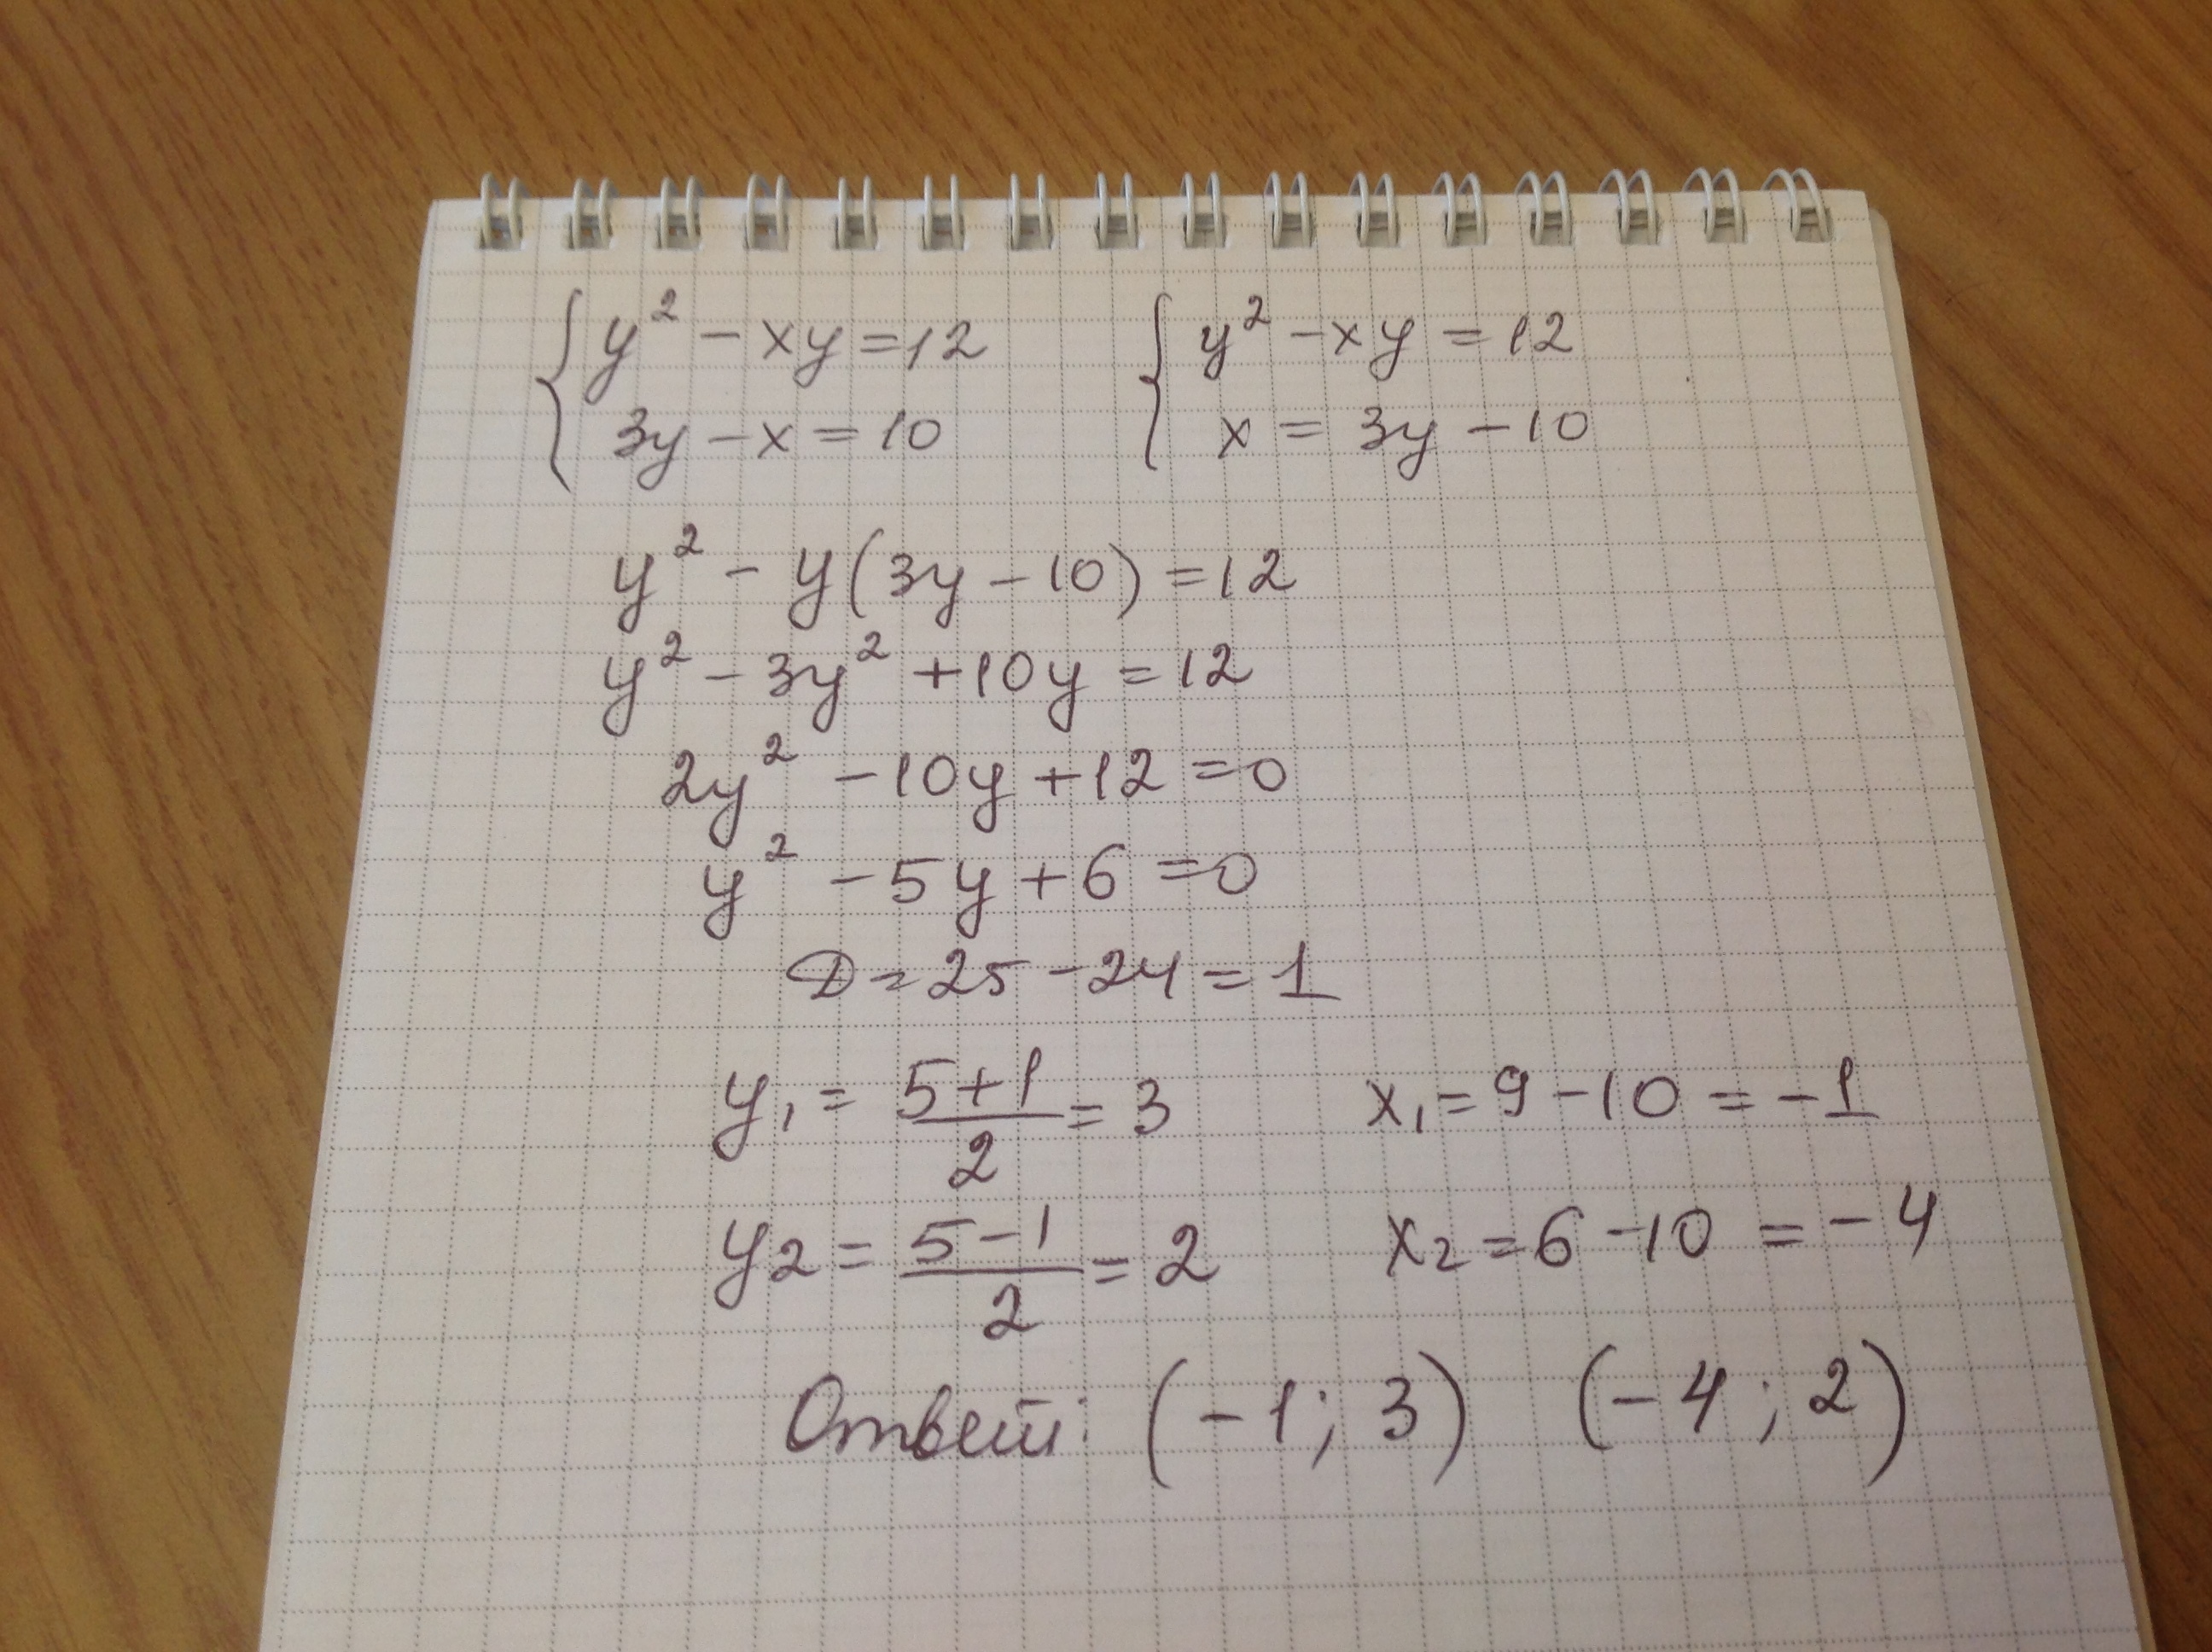 { y² - xy = 12 { y² - xy = 12
3y - x = 10 x = 3y - 10
y² - y(3y - 10) = 12
y² - 3y² + 10y = 12
2y² - 10y + 12 = 0
y² - 5y + 6 = 0
D = 25 - 24 = 1
y₁ = (5+1)/2 = 3 x₁ = 9 - 10 = -1
y₂ = (5-1)/2 = 2 x₂ = 6 - 10 = -4
Ответ: (-1; 3) (-4; 2)